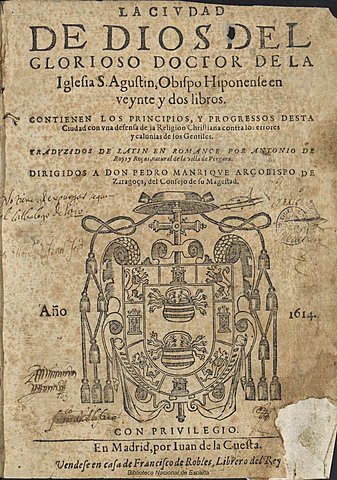 LA CIVDAD
DE DIOS DEL
GLORIOSO DOCTOR DE LA
Iglesia S. Agustin, Obispo Hiponense en
veynte y dos libros.
CONTIENEN LOS PRINCIPIOS, Y PROGRESSOS DESTA
Ciudad con vna defensa de la Religion Christiana contra los errores
y calunias de los Gentiles.
TRADVZIDOS DE LATIN EN ROMANCE POR ANTONIO DE
Roys y Roças, natural de la villa de Vergara.
DIRIGIDOS A DON PEDRO MANRIQVE ARÇOBISPO DE
Zaragoça, del Consejo de su Magestad.
Año 1614.
CON PRIVILEGIO.
En Madrid, por Iuan de la Cuesta.
Vendese en casa de Francisco de Robles, Librero del Rey
Biblioteca Nacional de España